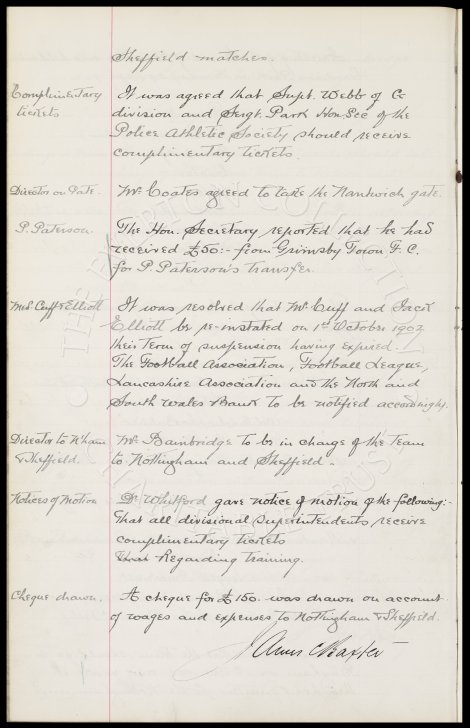 Sheffield matches.
Complimentary tickets
It was agreed that Supt. Webb of C
division and Sergt. Park Hon. Sec of the
Police Athletic Society should receive
complimentary tickets.
Director on Gate.
Mr Coates agreed to take the Nantwich gate.
P. Paterson.
The Hon. Secretary reported that he had
received £50:- from Grimsby Town F.C.
for P. Paterson's transfer.
Mess Cuff & Elliott
It was resolved that Mr Cuff and Jack
Elliott be re-instated on 1st October 1902
their term of suspension having expired.
The Football Association, Football League,
Lancashire Association and the North and
South Wales Bank to be notified accordingly.
Director to N'ham
& Sheffield.
Mr Bainbridge to be in charge of the team
to Nottingham and Sheffield.
Notices of Motion
Dr Whitford gave notice of motion of the following:
that all divisional superintendents receive
complimentary tickets
That Regarding training.
Cheque drawn.
A cheque for £150. was drawn on account
of wages and expenses to Nottingham & Sheffield.
James C Baxter